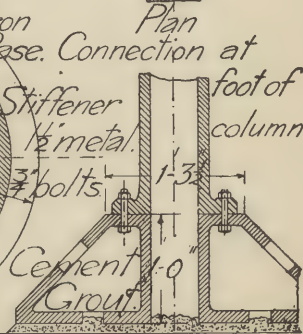 on Plan
Base. Connection at
foot of
column
Stiffener
1½" metal.
¾" bolts.
1-3½"
Cement
Grout.
1'-0"